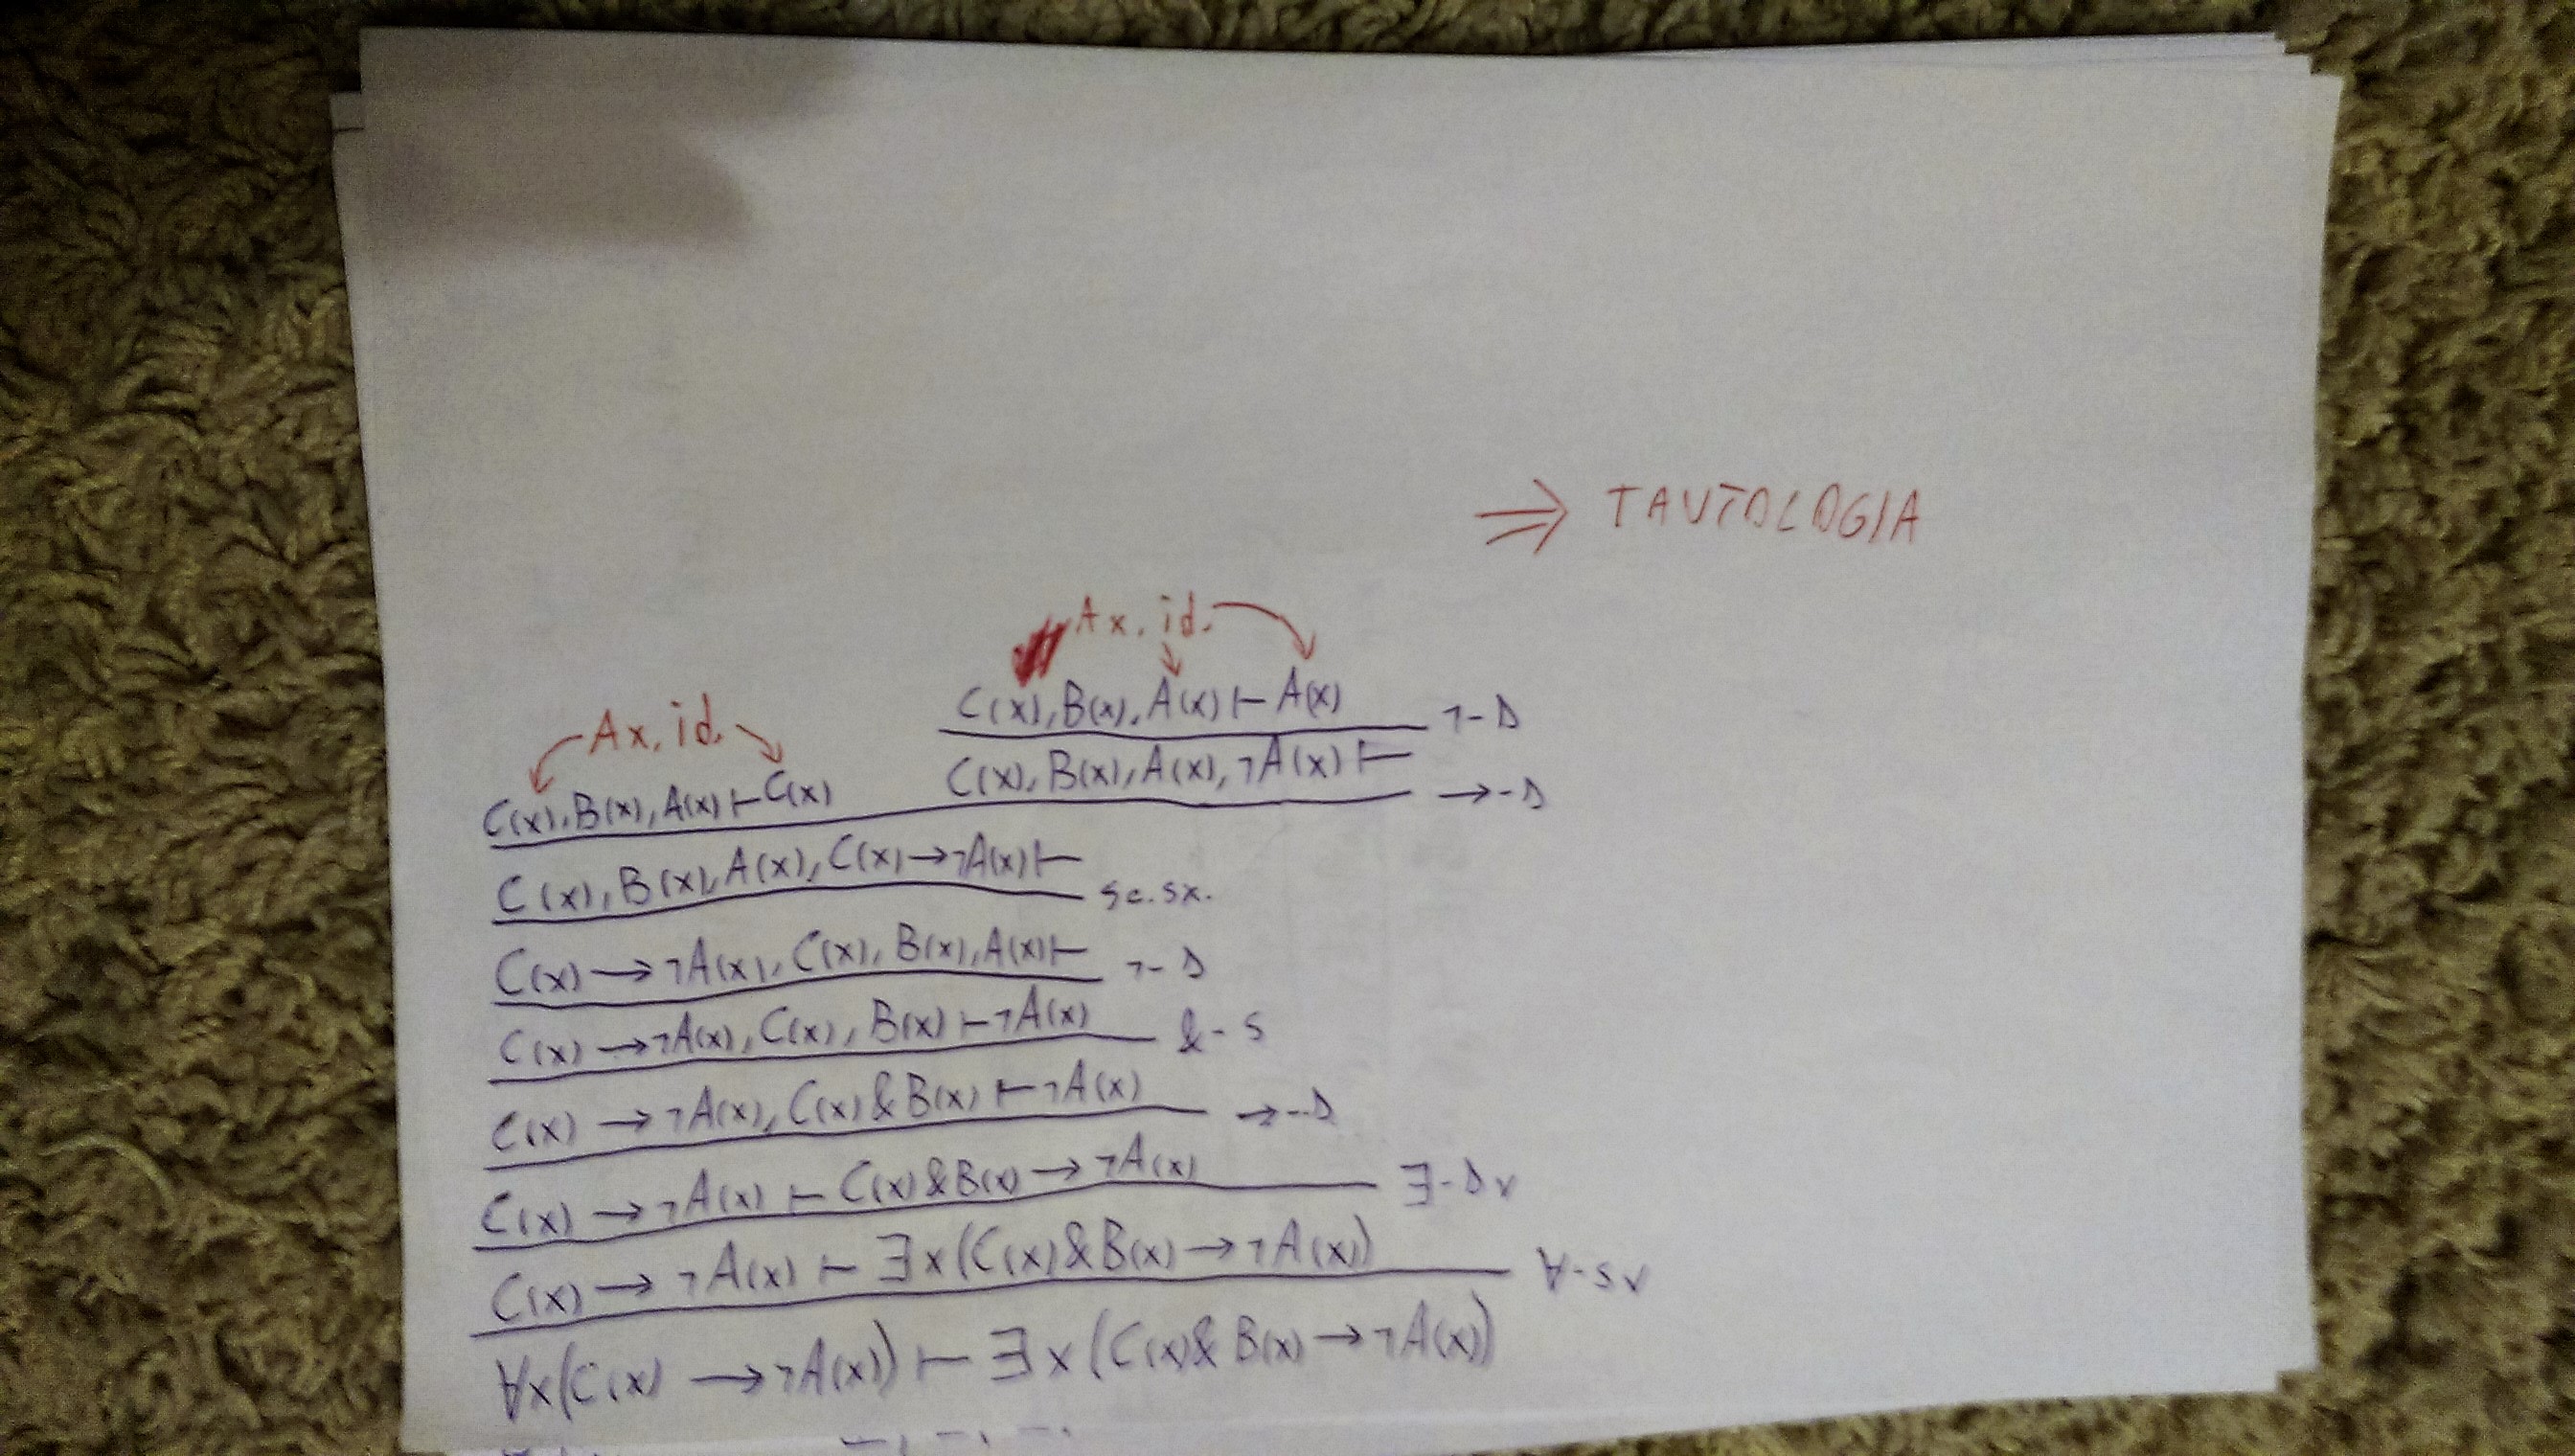 ⇒ TAUTOLOGIA
Ax. id.
C(x), B(x), A(x) ⊢ A(x) ¬-D
Ax. id.
C(x), B(x), A(x) ⊢ C(x) C(x), B(x), A(x), ¬A(x) ⊢ →-D
C(x), B(x), A(x), C(x) → ¬A(x) ⊢ sc.sx.
C(x) → ¬A(x), C(x), B(x), A(x) ⊢ ¬-D
C(x) → ¬A(x), C(x), B(x) ⊢ ¬A(x) &-S
C(x) → ¬A(x), C(x) & B(x) ⊢ ¬A(x) →-D
C(x) → ¬A(x) ⊢ C(x) & B(x) → ¬A(x) ∃-Dv
C(x) → ¬A(x) ⊢ ∃x(C(x) & B(x) → ¬A(x)) ∀-Sv
∀x(C(x) → ¬A(x)) ⊢ ∃x(C(x) & B(x) → ¬A(x))